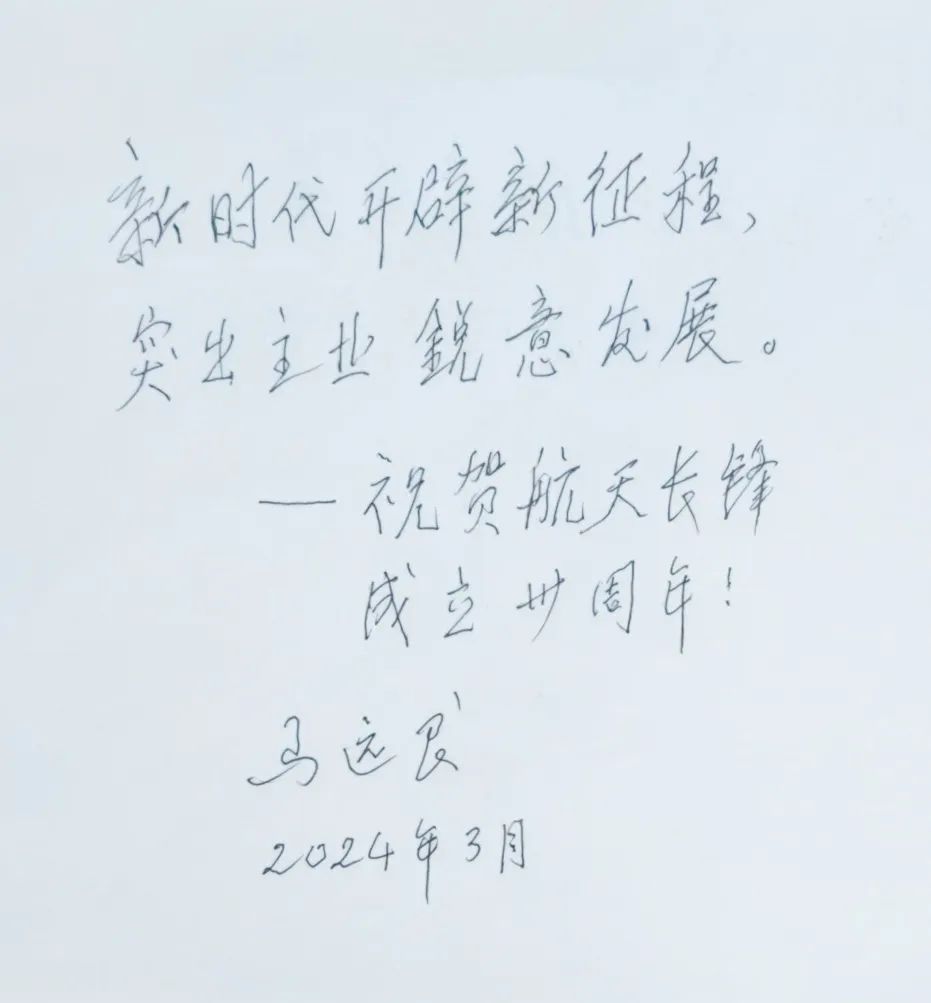 新时代开辟新征程，
突出主业锐意发展。
——祝贺航天长锋
成立卅周年！
马远良
2024年3月